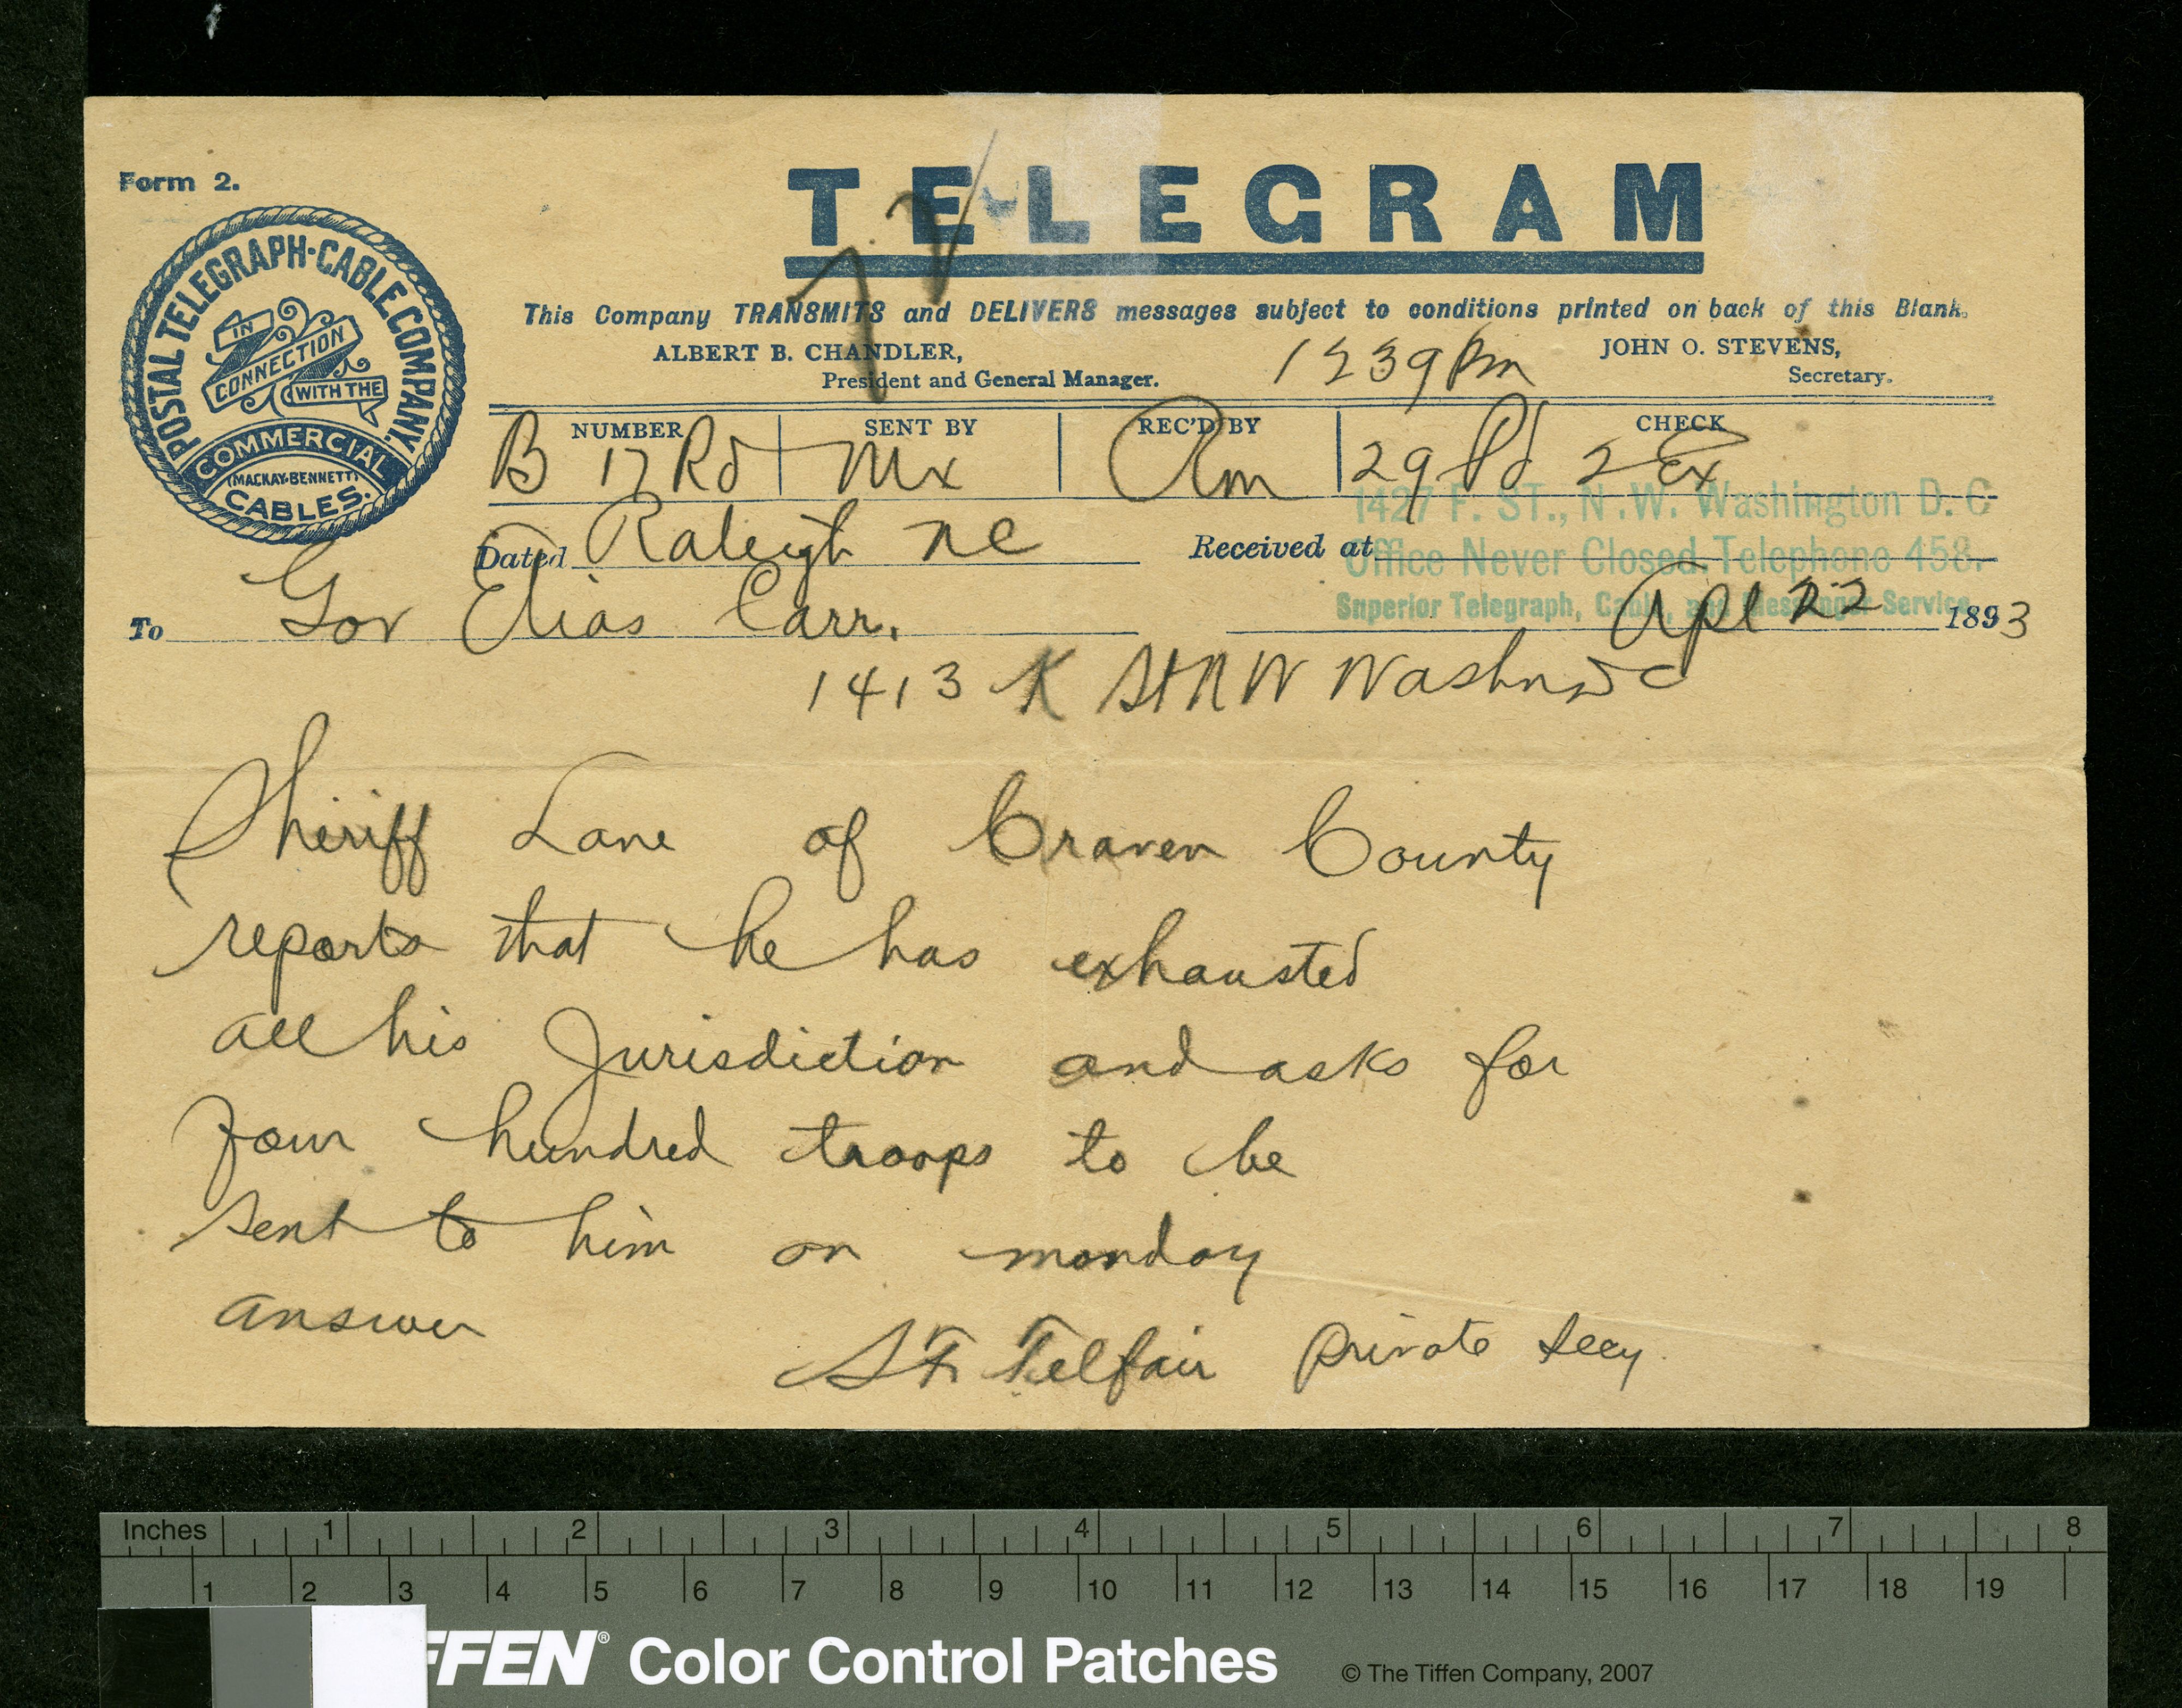 Form 2.
TELEGRAM
POSTAL TELEGRAPH-CABLE COMPANY.
IN
CONNECTION
WITH THE
COMMERCIAL
(MACKAY-BENNETT)
CABLES.
This Company TRANSMITS and DELIVERS messages subject to conditions printed on back of this Blank.
ALBERT B. CHANDLER,
President and General Manager.
1239 Pm
JOHN O. STEVENS,
Secretary.
NUMBER SENT BY REC'D BY CHECK
B 17 Rd Mx Am 29 Pd 2 Ex
1427 F. ST., N.W. Washington D. C
Dated Raleigh NC Received at Office Never Closed. Telephone 458.
Superior Telegraph, Cable, and Messenger Service
To Gov Elias Carr. Apl 22 1893
1413 K St N W Washn DC
Sheriff Lane of Craven County
reports that he has exhausted
all his Jurisdiction and asks for
four hundred troops to be
sent to him on monday
answer
S F Telfair Private Secy
Inches 1 2 3 4 5 6 7 8
1 2 3 4 5 6 7 8 9 10 11 12 13 14 15 16 17 18 19
FFEN® Color Control Patches © The Tiffen Company, 2007